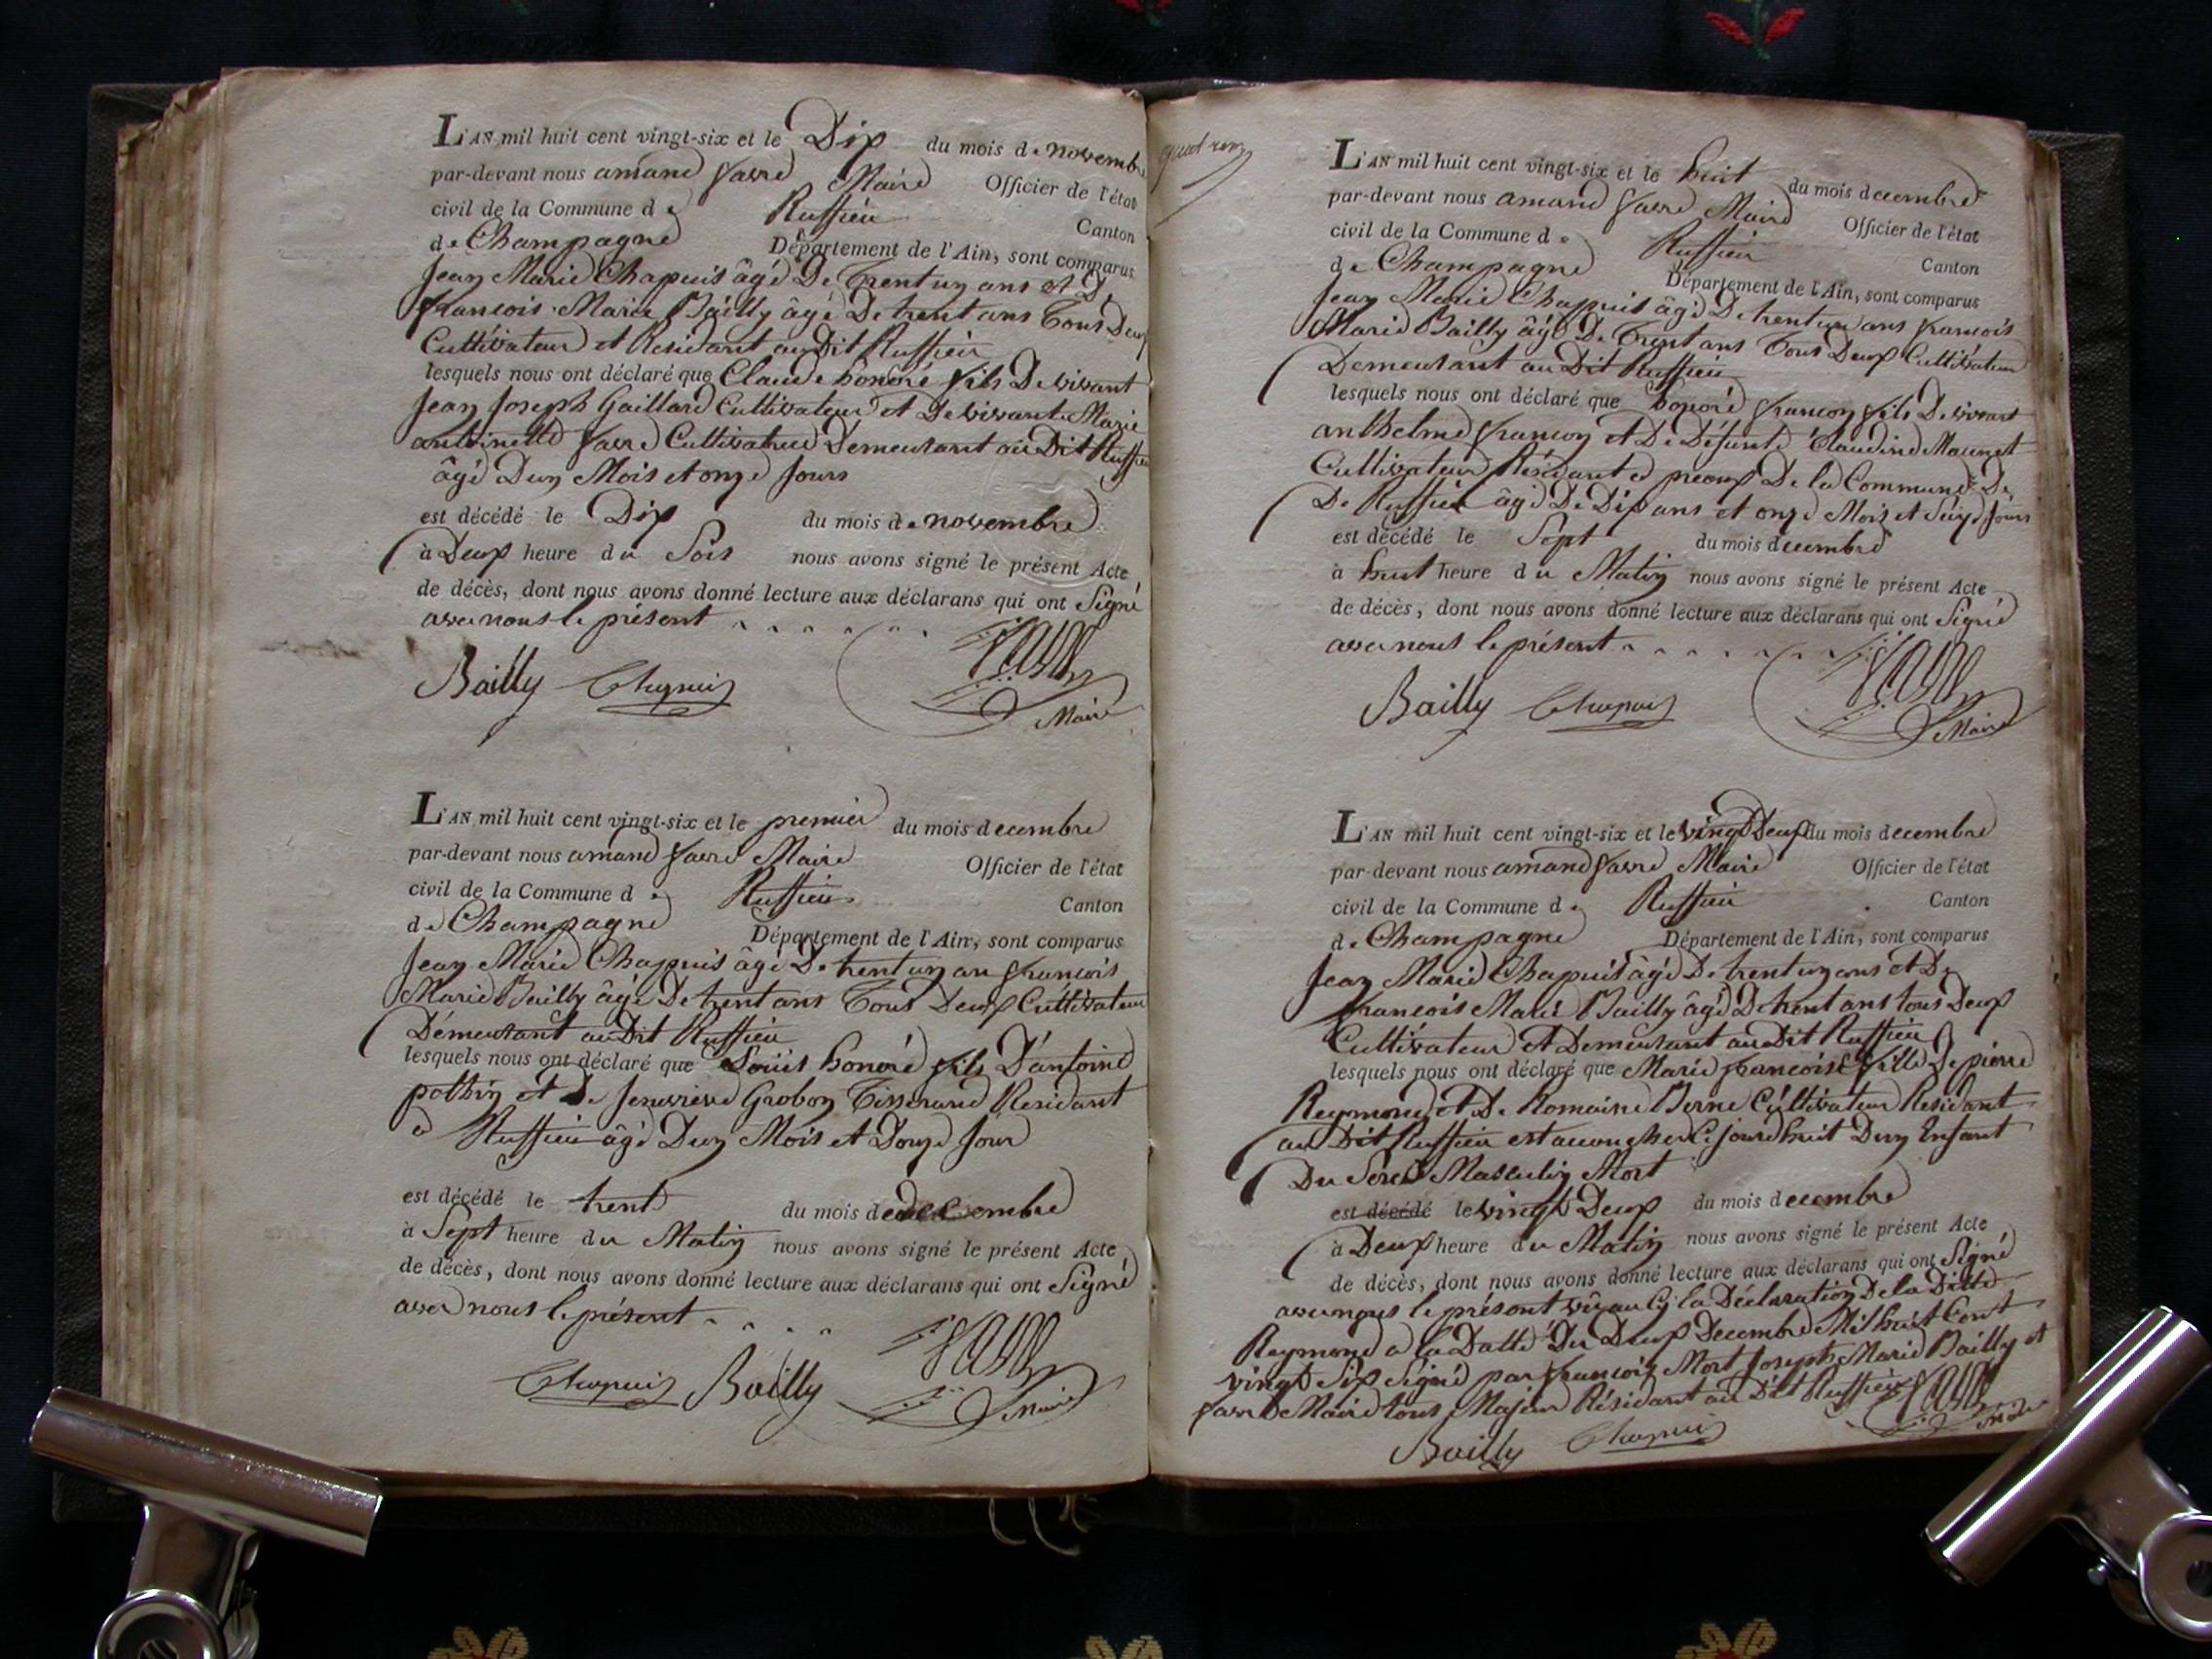 L'AN mil huit cent vingt-six et le Dix du mois de novembre
par-devant nous amand favre Maire Officier de l'état
civil de la Commune de Ruffieu Canton
de Champagne Département de l'Ain, sont comparus
Jean Marie Chapuis âgé De Trent un ans et De
françois Marie Bailly âgé De trent ans Tous Deux
Cultivateur et Residant au Dit Ruffieu
lesquels nous ont déclaré que Claude honoré fils De vivant
Jean Joseph Gaillard Cultivateur et De vivante Marie
antoinette favre Cultivatrice Demeurant au Dit Ruffieu
âgé Dun Mois et onze Jours
est décédé le Dix du mois de novembre
à Deux heure du Soir nous avons signé le présent Acte
de décès, dont nous avons donné lecture aux déclarans qui ont Signé
avec nous le présent
Bailly Chapuis favre
Maire
L'AN mil huit cent vingt-six et le premier du mois decembre
par-devant nous amand favre Maire Officier de l'état
civil de la Commune de Ruffieu Canton
de Champagne Département de l'Ain, sont comparus
Jean Marie Chapuis âgé De trent un an françois
Marie Bailly âgé De trent ans Tous Deux Cultivateur
Démeurant au Dit Ruffieu
lesquels nous ont déclaré que Louis honoré fils D'antoine
pothin et De Jenevieve Grobon Tisserand Residant
a Ruffieu âgé Dun Mois et Douze Jour
est décédé le trent du mois de
à Sept heure du Matin nous avons signé le présent Acte
de décès, dont nous avons donné lecture aux déclarans qui ont Signé
avec nous le présent
Chapuis Bailly favre
Maire
L'AN mil huit cent vingt-six et le huit du mois decembre
par-devant nous amand favre Maire Officier de l'état
civil de la Commune de Ruffieu Canton
de Champagne Département de l'Ain, sont comparus
Jean Marie Chappuis âgé De trent un ans françois
Marie Bailly âgé De Trent ans Tous Deux Cultivateur
Demeurant au Dit Ruffieu
lesquels nous ont déclaré que honoré françon fils De vivant
anthelme françon et De Défunte Claudine
Cultivateur Résidant a De la Commune De
De Ruffieu âgé De Dix ans et onze Mois et Seize Jours
est décédé le Sept du mois decembre
à huit heure du Matin nous avons signé le présent Acte
de décès, dont nous avons donné lecture aux déclarans qui ont Signé
avec nous le présent
Bailly Chapuis favre
Maire
L'AN mil huit cent vingt-six et le vingt Deux du mois decembre
par-devant nous amand favre Maire Officier de l'état
civil de la Commune de Ruffieu Canton
de Champagne Département de l'Ain, sont comparus
Jean Marie Chapuis âgé De trent un ans et De
françois Marie Bailly âgé De trent ans tous Deux
Cultivateur et Demeurant au Dit Ruffieu
lesquels nous ont déclaré que Marie françoise fille De pierre
Reymond et De Romaine Berne Cultivateur Residant
au Dit Ruffieu est accoucher Ce jourdhuit Dun Enfant
Du Sexe Masculin Mort
est décédé le vingt Deux du mois decembre
à Deux heure du Matin nous avons signé le présent Acte
de décès, dont nous avons donné lecture aux déclarans qui ont Signé
avec nous le présent la Déclaration De la Ditte
Reymond a la Datte Du Deux Decembre Mil huit Cent
vingt Six Signé par françois Mort Joseph Marie Bailly et
favre De Maire tous Majeur Résidant au Dit Ruffieu favre
Bailly Chapuis